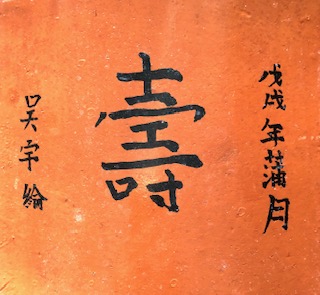 戊戌年蒲月
壽
吴宇綸